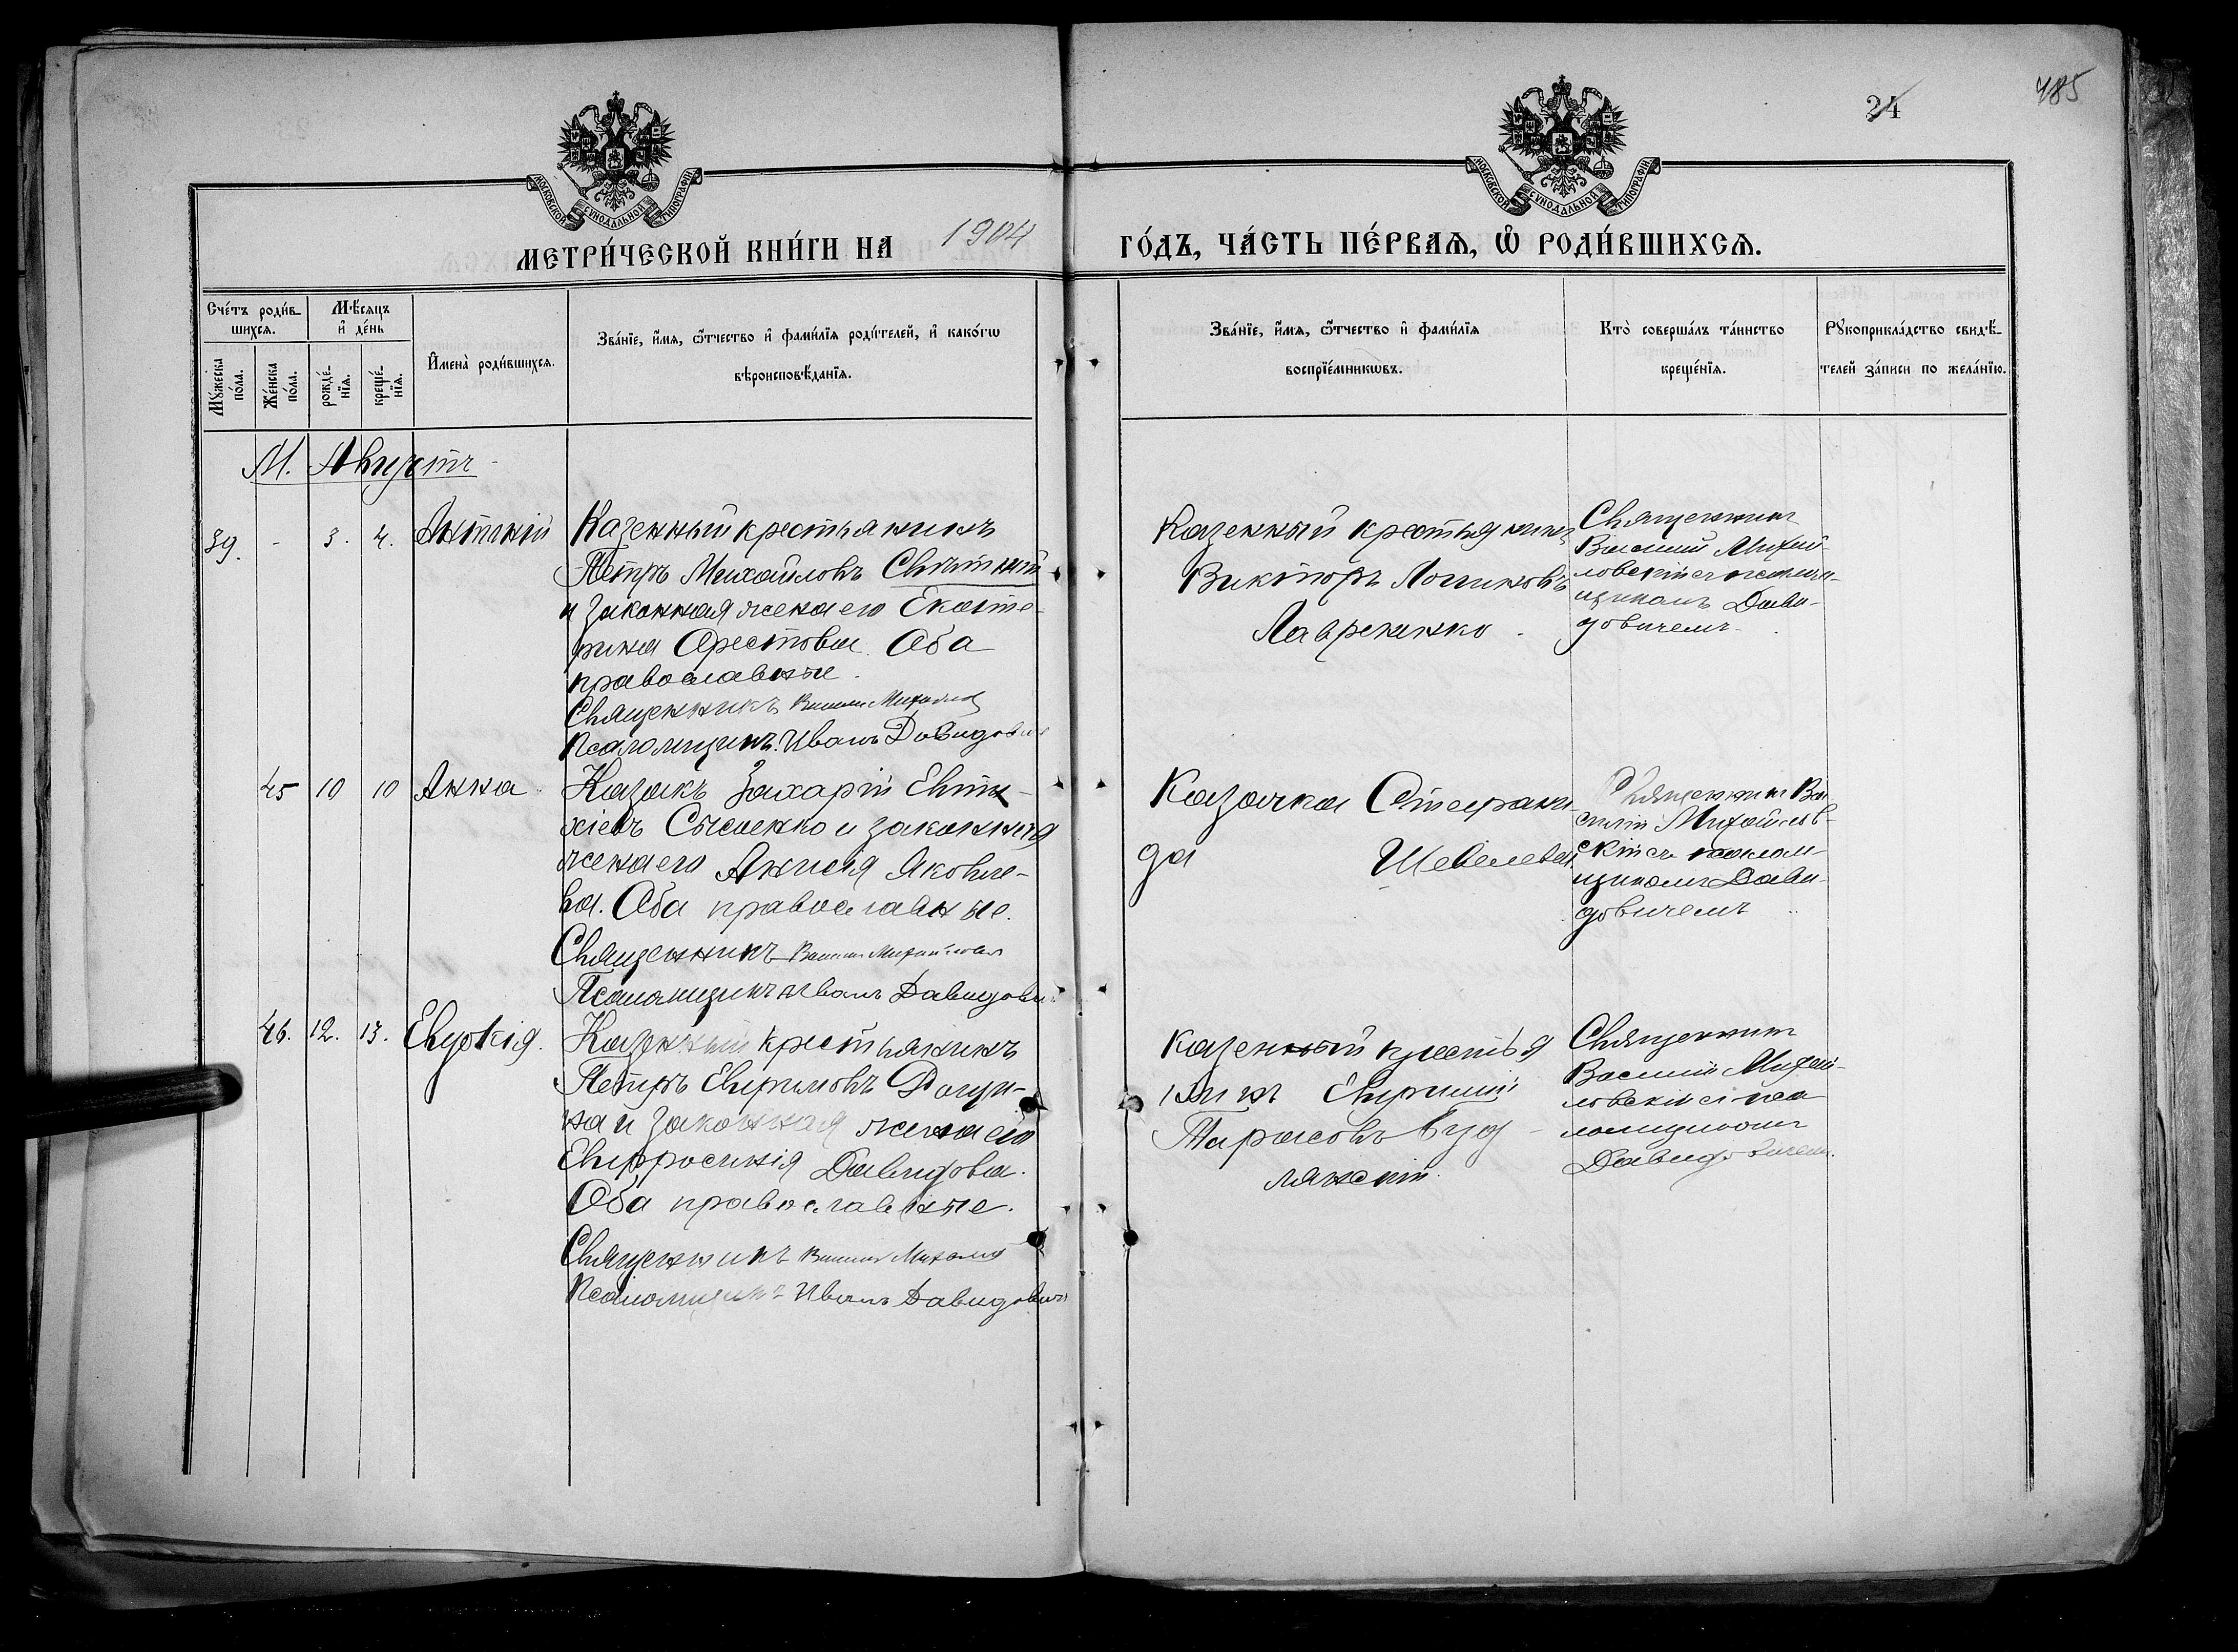 485
24
МОСКОВСКОЙ СѴНОДАЛЬНОЙ ТИПОГРАФІИ
МОСКОВСКОЙ СѴНОДАЛЬНОЙ ТИПОГРАФІИ
МЕТРИ́ЧЕСКОЙ КНИ́ГИ НА 1904 ГО́ДЪ, ЧА́СТЬ ПЕ́РВАѦ, Ѽ РОДИ́ВШИХСѦ.
Сче́тъ роди́в-
шихсѧ.
Мѣ́сѧцъ
и҆ де́нь
Мꙋ́жеска по́ла.
Же́нска по́ла.
рожде́-
нїѧ.
креще́-
нїѧ.
И҆мена̀ роди́вшихсѧ.
Зва́нїе, и҆́мѧ, ѻ҆́тчество и҆ фами́лїѧ роди́телей, и҆ како́гѡ
вѣроисповѣ́данїѧ.
Зва́нїе, и҆́мѧ, ѻ҆́тчество и҆ фами́лїѧ
воспрїе́мникѡвъ.
Кто̀ соверша́лъ та́инство
креще́нїѧ.
Рꙋкоприкла́дство свидѣ́-
телей за́писи по жела́нїю.
М. Августъ
39. - 3. 4. Антоній
Казенный крестьянинъ
Петръ Михайловъ
и законная жена его Екате-
рина Орестова. Оба
православные.
Священникъ Василій
Псаломщикъ Иванъ Давидовичъ
Казенный крестьянинъ
Викторъ Логиновъ
Лавриненко.
Священникъ
Василій Михай-
ловскій съ псалом-
щикомъ Дави-
довичемъ.
45 10 10 Анна.
Казакъ Захарій Евти-
хіевъ Сысоенко и законная
жена его Анисія Яковле-
ва. Оба православные.
Священникъ Василій
Псаломщикъ Иванъ Давидовичъ
Казачка
да Шевелева.
Священникъ Ва-
силій Михайлов-
скій съ псалом-
щикомъ Дави-
довичемъ
46. 12. 13. Евдокія.
Казенный крестьянинъ
Петръ Ефимовъ
на и законная жена его
Евфросинія Давидова.
Оба православные.
Священникъ Василій
Псаломщикъ Иванъ Давидовичъ
Казенный крестья
нинъ Ефимій
Тарасовъ
Священникъ
Василій Михай-
ловскій съ пса
ломщикомъ
Давидовичемъ.